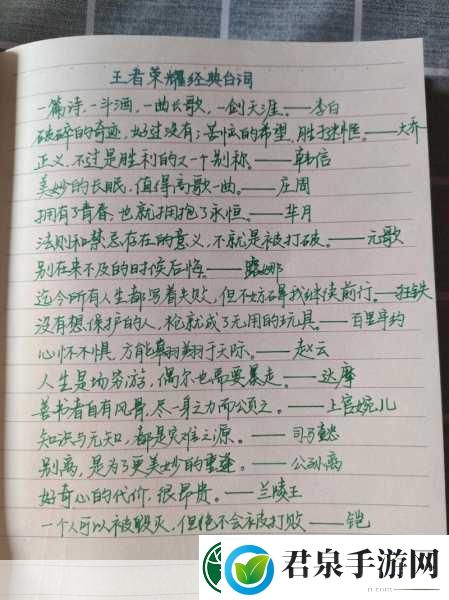 王者荣耀经典台词
一篇诗,一斗酒,一曲长歌,一剑天涯。——李白
破碎的奇迹,好过没有;苦恼的希望,胜于迷惘。——大乔
正义,不过是胜利的又一个别称。——韩信
美妙的长眠,值得高歌一曲。——庄周
拥有了青春,也就拥抱了永恒。——芈月
法则和禁忌存在的意义,不就是被打破。——元歌
别在来不及的时候后悔。——露娜
迄今所有人生都写着失败,但不妨碍我继续前行。——狂铁
没有想保护的人,枪就成了无用的玩具。——百里守约
心怀不惧,方能翱翔于天际。——赵云
人生是场穷游,偶尔也需要暴走。——达摩
善书者自有风骨,尽一身之力而贞之。——上官婉儿
知识与无知,都是灾难之源。——司马懿
别离,是为了更美妙的重逢。——公孙离
好奇心的代价,很昂贵。——兰陵王
一个人可以被毁灭,但绝不会被打败——铠
君泉手游网